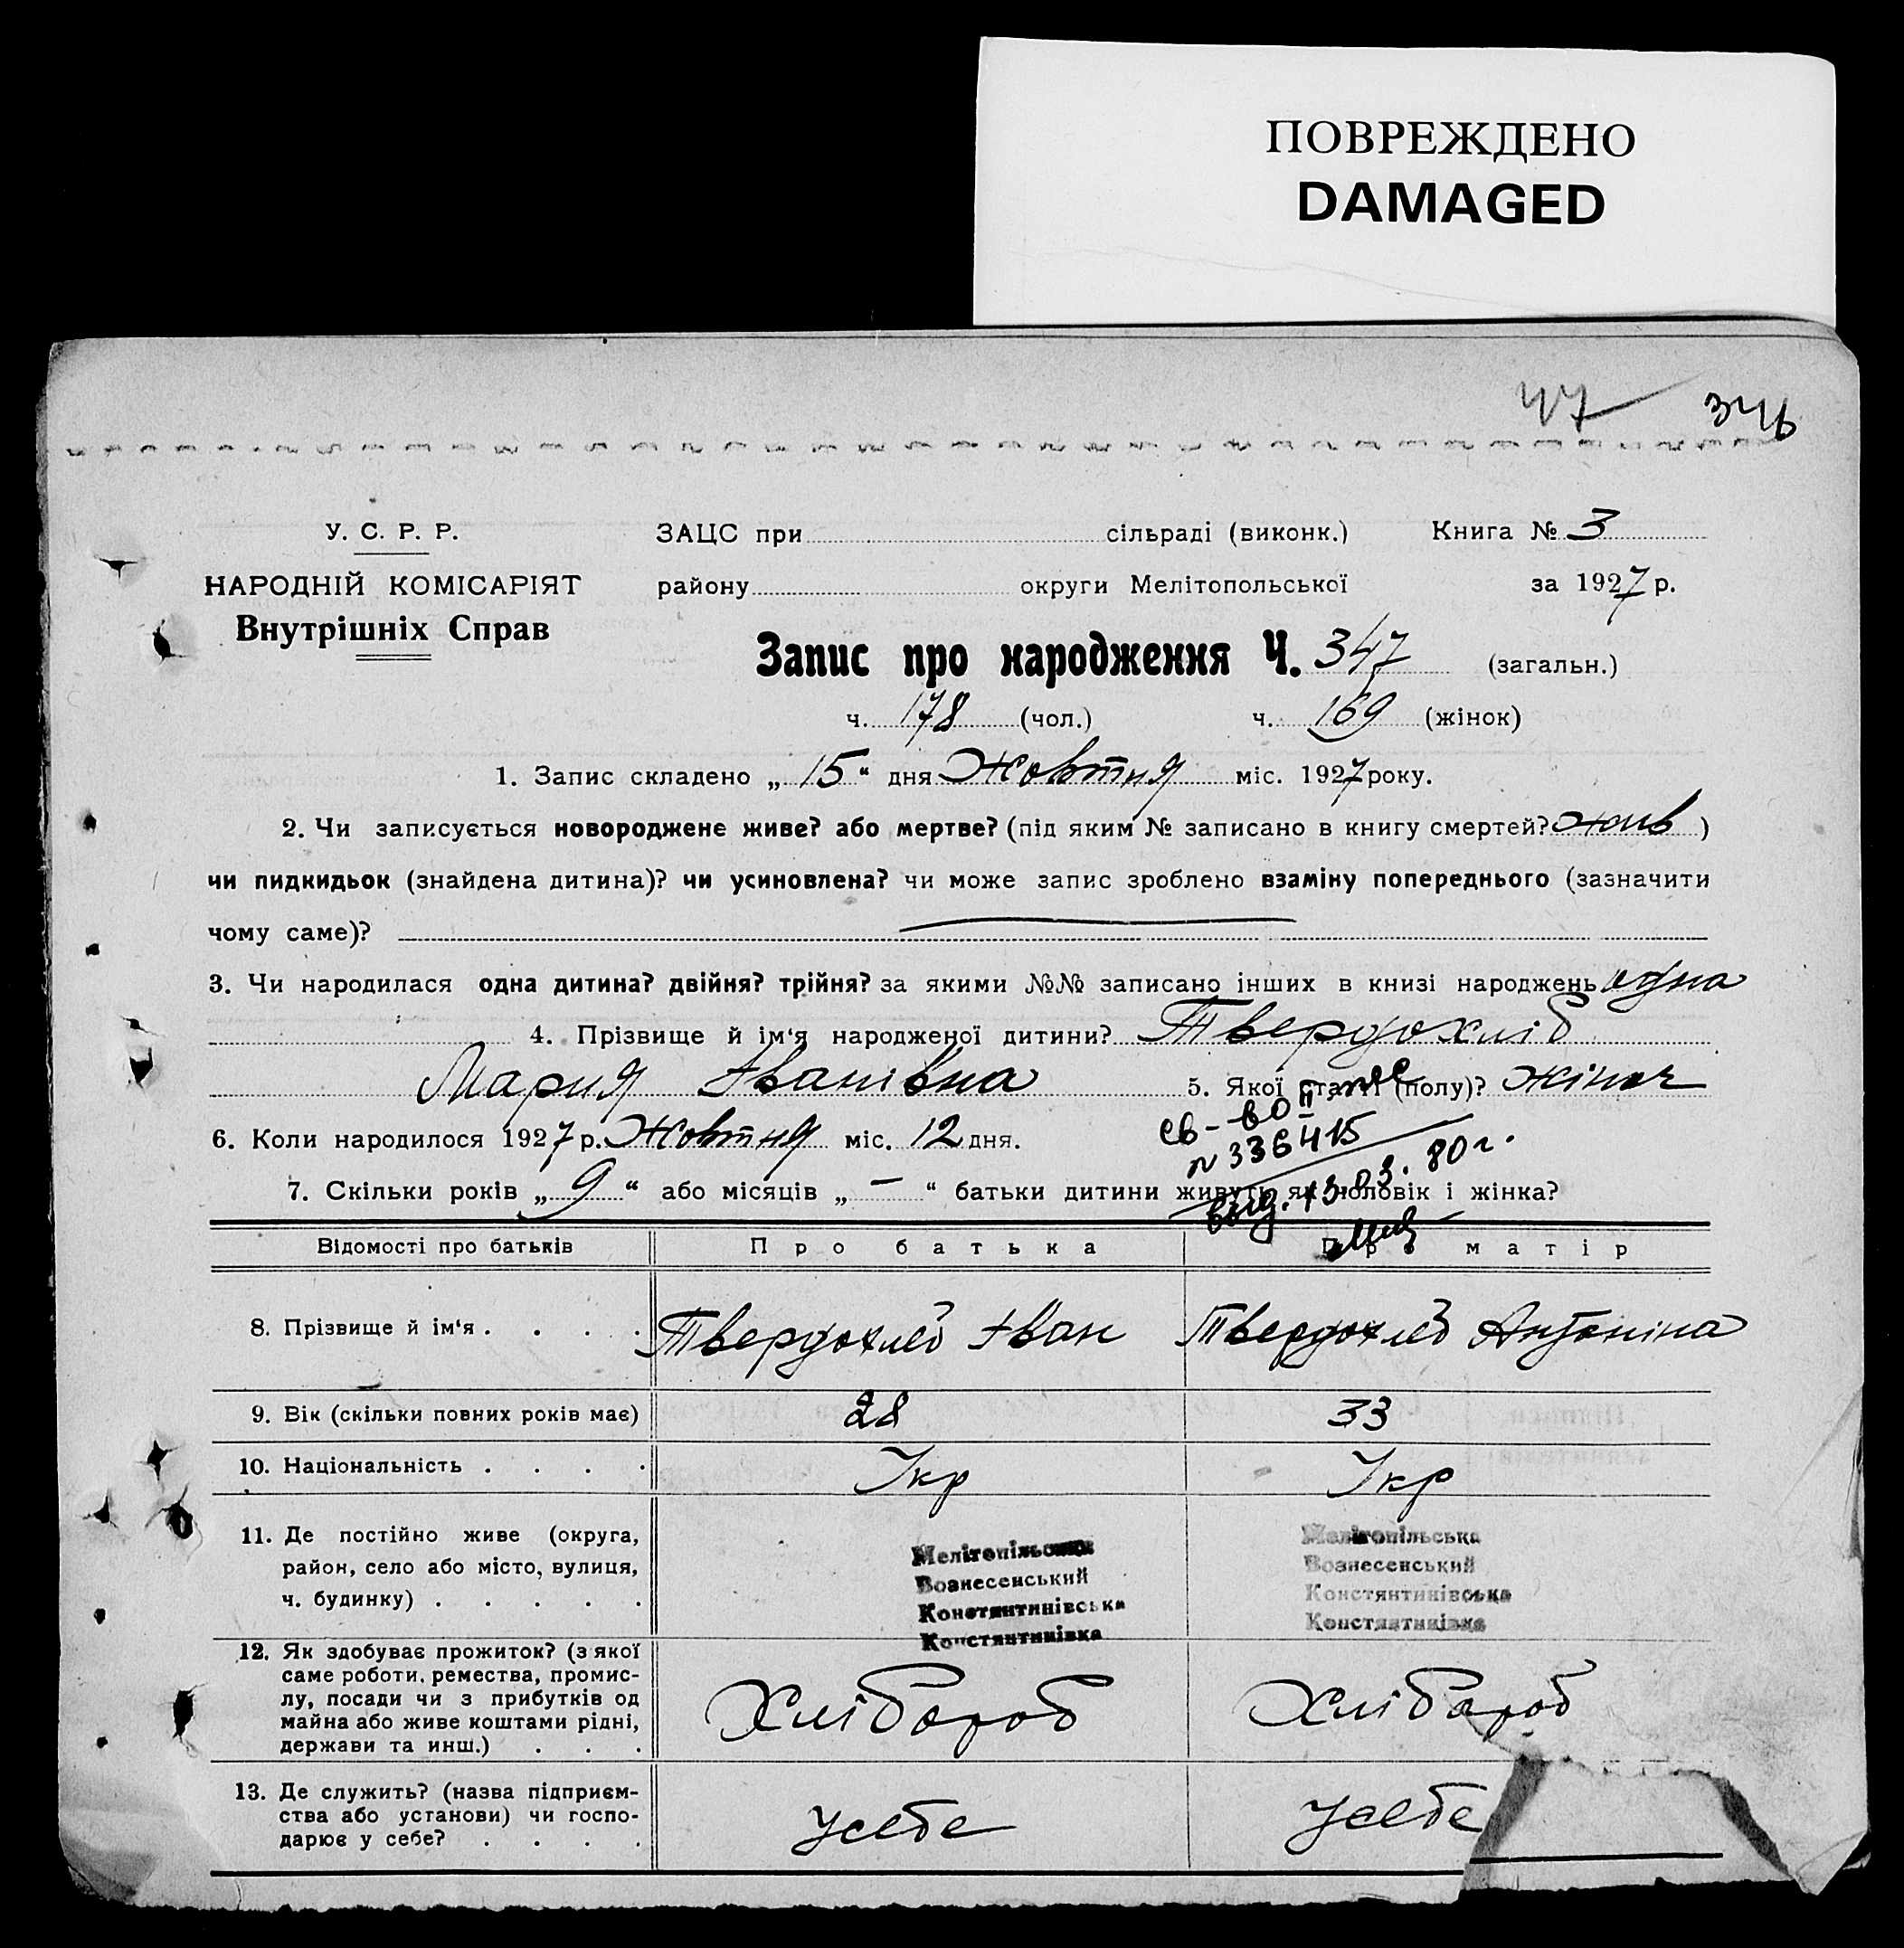 ПОВРЕЖДЕНО
DAMAGED
47
У. С. Р. Р.
НАРОДНІЙ КОМІСАРІЯТ
Внутрішніх Справ
ЗАЦС при сільраді (виконк.) Книга № 3
району округи Мелітопольської за 1927 р.
Запис про народження Ч. 347 (загальн.)
ч. 178 (чол.) ч. 169 (жінок)
1. Запис складено „ 15 “ дня Жовтня міс. 1927 року.
2. Чи записується новороджене живе? або мертве? (під яким № записано в книгу смертей? жив )
чи пидкидьок (знайдена дитина)? чи усиновлена? чи може запис зроблено взаміну попереднього (зазначити
чому саме)?
3. Чи народилася одна дитина? двійня? трійня? за якими №№ записано інших в книзі народжень одна
4. Прізвище й ім‘я народженої дитини? Твердохліб
Мария Іванівна 5. Якої статі (полу)? жіноч
св-во II
N 336415
выд. 13.03.80 г.
6. Коли народилося 1927 р. Жовтня міс. 12 дня.
7. Скільки років „ 9 “ або місяців „ — “ батьки дитини живуть як чоловік і жінка?
Відомості про батьків Про батька Про матір
8. Прізвище й ім‘я . . . . Твердохліб Іван Твердохліб Антоніна
9. Вік (скільки повних років має) 28 33
10. Національність . . . . Укр Укр
11. Де постійно живе (округа,
район, село або місто, вулиця,
ч. будинку) . . . . .
Мелітопільська
Вознесенський
Констянтинівська
Констянтинівка
Мелітопільська
Вознесенський
Констянтинівська
Констянтинівка
12. Як здобуває прожиток? (з якої
саме роботи, ремества, промис-
лу, посади чи з прибутків од
майна або живе коштами рідні,
держави та инш.) . . .
Хлібороб Хлібороб
13. Де служить? (назва підприєм-
ства або установи) чи госпо-
дарює у себе? . . . .
Усебе Усебе